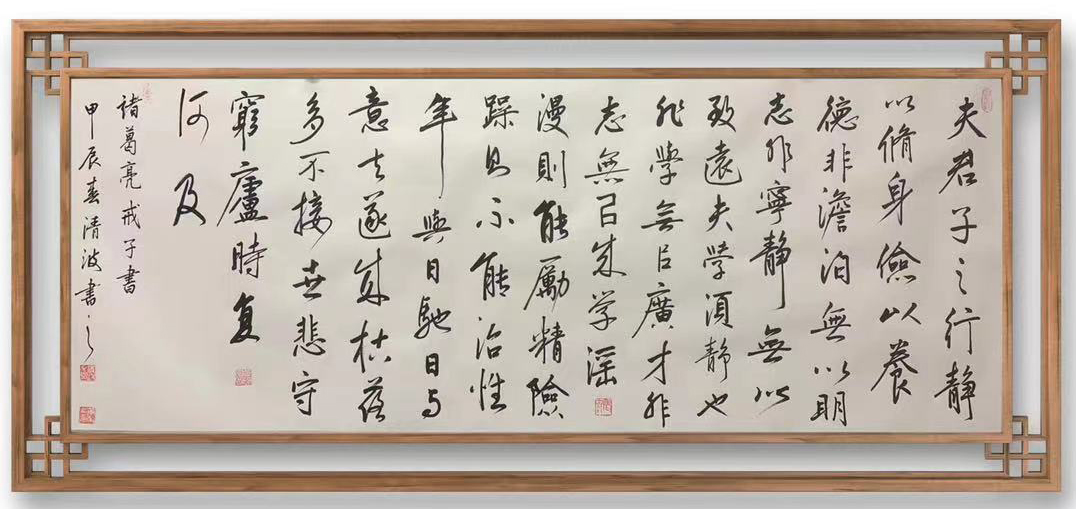 夫君子之行静
以脩身儉以養
德非澹泊無以明
志非寧静無以
致遠夫學須静也
非學無以廣才非
志無以成学滛
漫則能勵精險
躁則不能治性
年與日馳日与
意去遂成枯落
多不接世悲守
窮廬時复
何及
諸葛亮戒子書
甲辰春清波書之